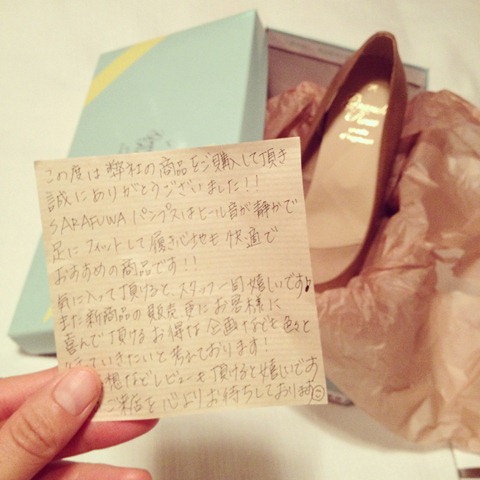 この度は弊社の商品をご購入して頂き
誠にありがとうございました!!
SARAFUWAパンプスはヒール音が静かで
足にフィットして履き心地も快適で
おすすめの商品です!!
気に入って頂けると、スタッフ一同嬉しいです♪
また新商品の販売、更にお客様に
喜んで頂けるお得な企画なども色々と
していきたいと考えております!
想などレビューも頂けると嬉しいです
ご来店を心よりお待ちしております
made